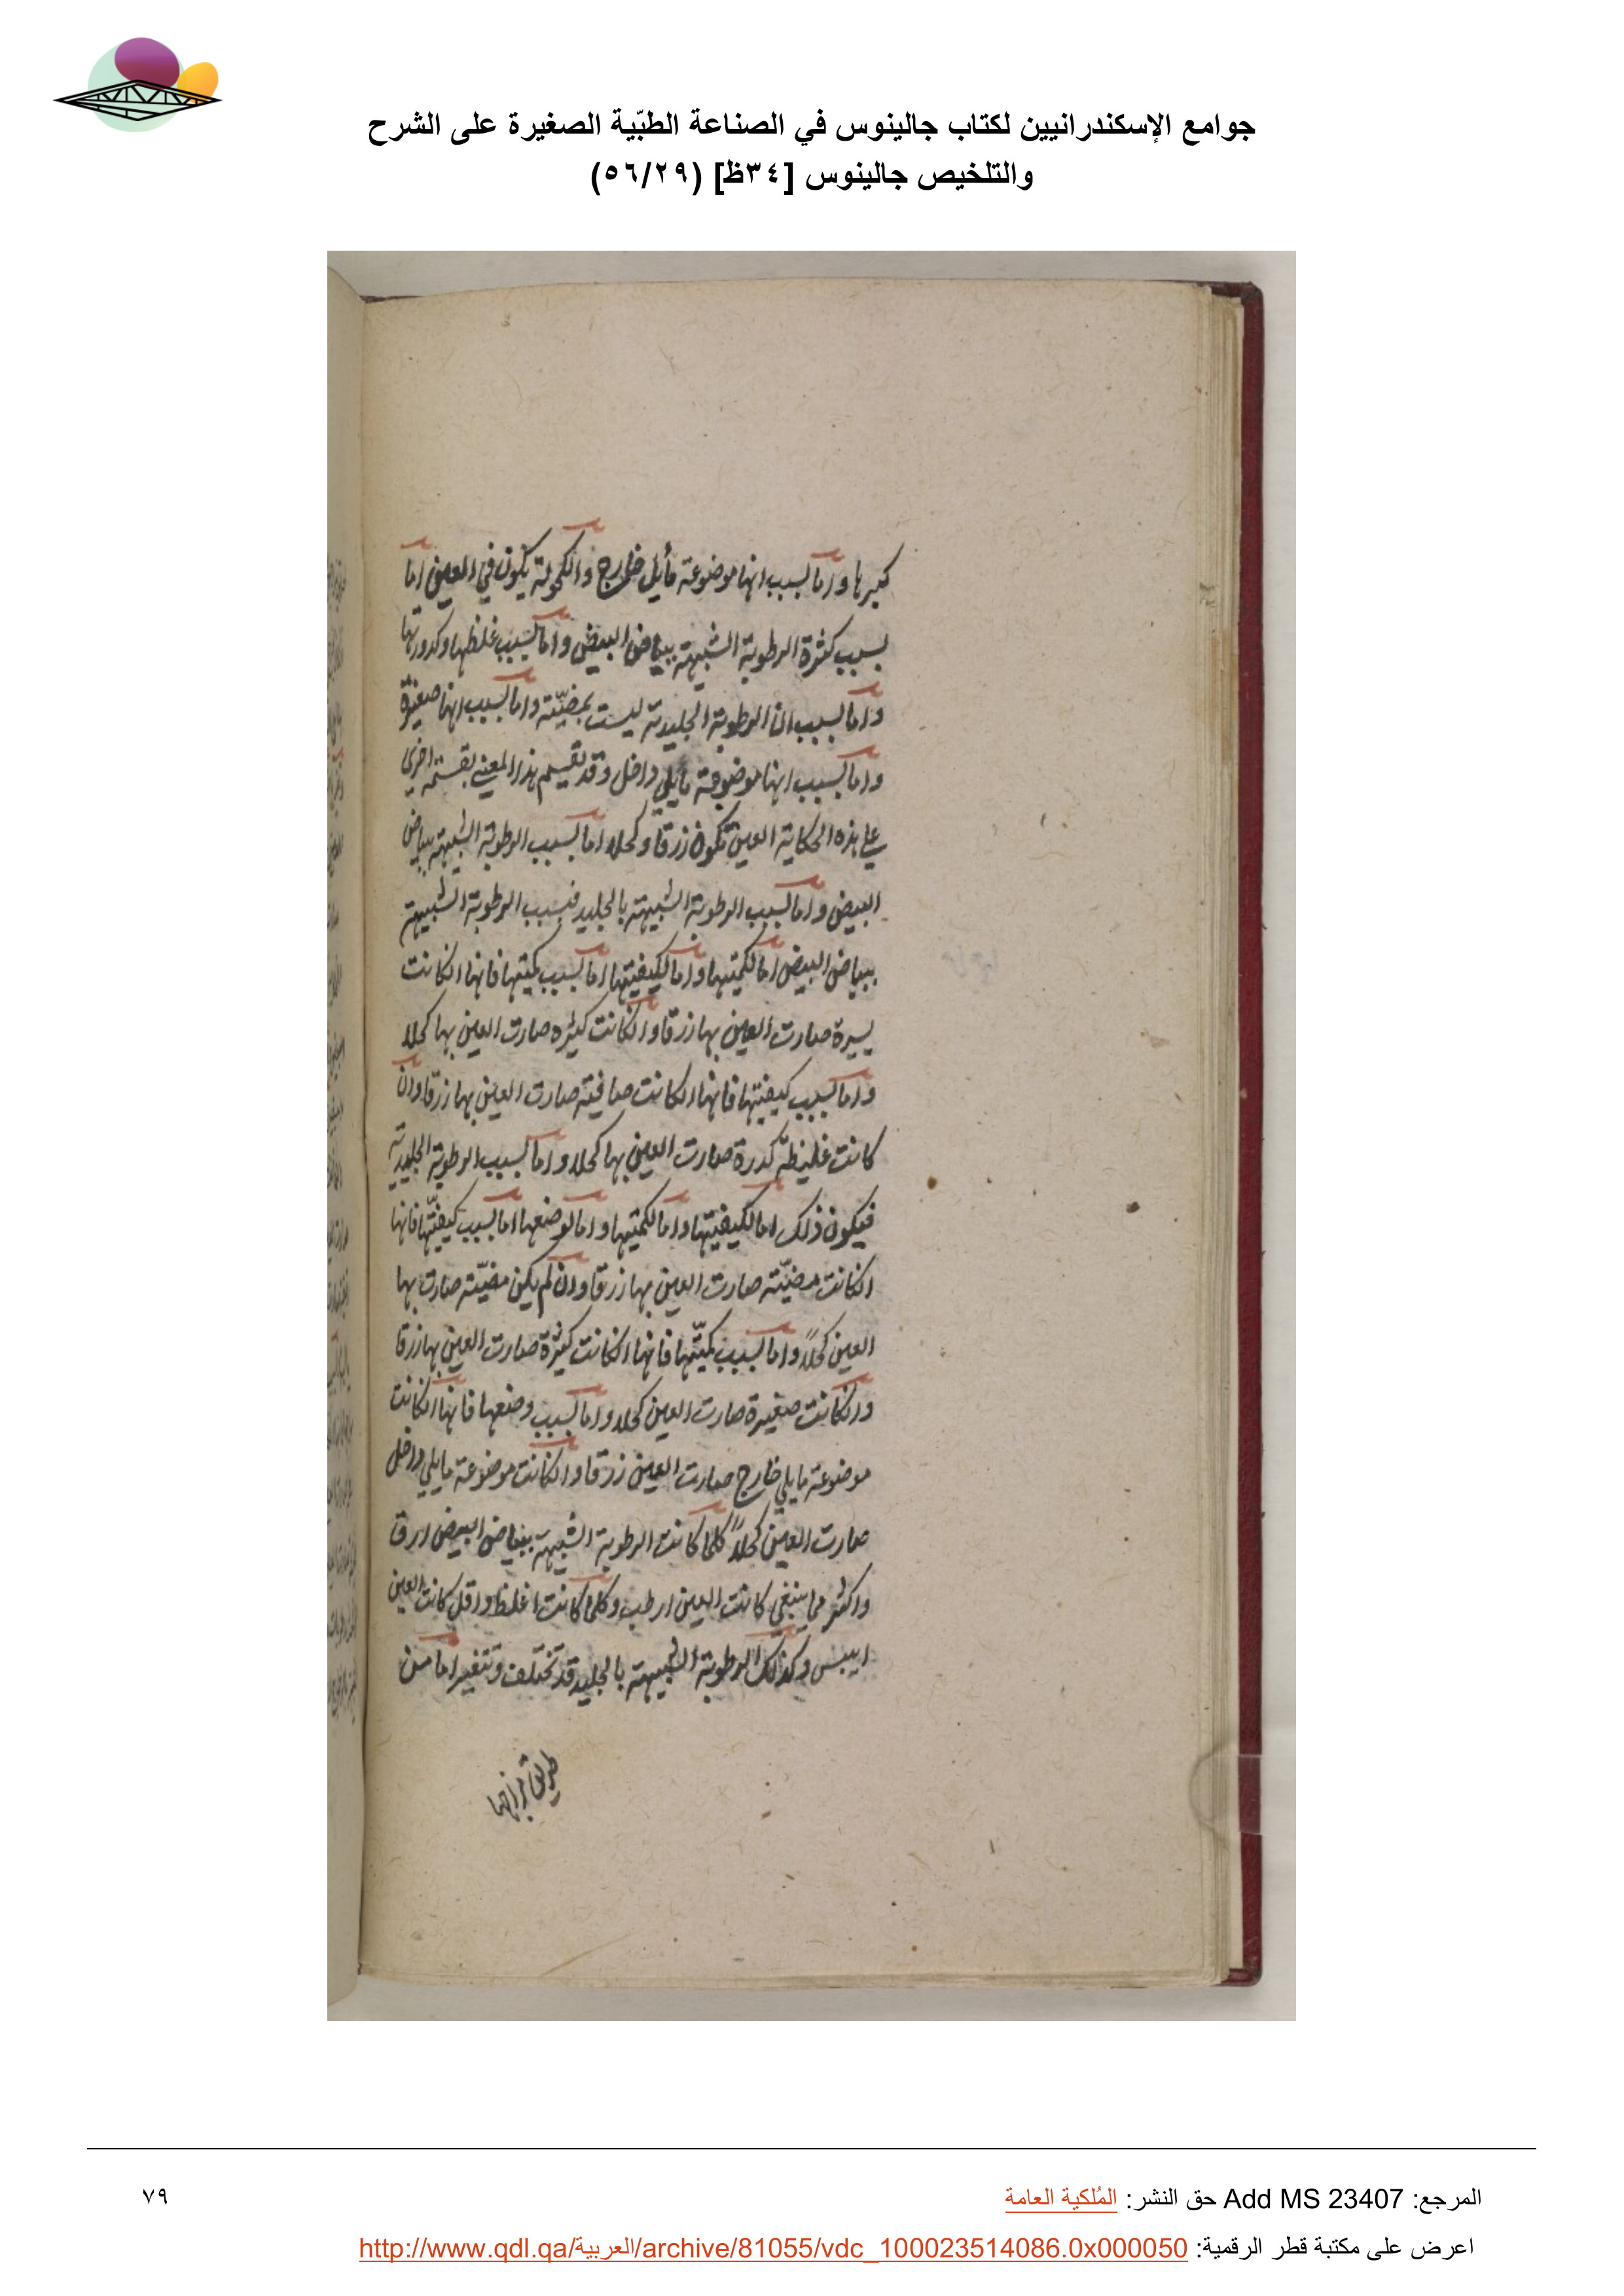 جوامع الإسكندرانيين لكتاب جالينوس في الصناعة الطبّية الصغيرة على الشرح
والتلخيص جالينوس [٣٤ظ] (٥٦/٢٩)
كبرها واما لسبب انها موضوعة مايلى خارج والكحولة يكون في العين اما
بسبب كثرة الرطوبة الشبيهة ببياض البيض واما لسبب غلظها وكدورتها
واما لسبب ان الرطوبة الجليدية ليست بمضيّة واما لسبب انها صغيرة
واما لسبب انها موضوعة مايلي داخل وقد تقسم هذا المعنى بقسمة اخرى
على هذه الحكاية العين تكون زرقا وكحلا اما لسبب الرطوبة الشبيهة ببياض
البيض واما لسبب الرطوبة الشبيهة بالجليد فبسبب الرطوبة الشبيهة
ببياض البيض اما لكميتها واما لكيفيتها اما لسبب كميتها فانها انكانت
يسيرة صارت العين بها زرقا وانكانت كثيره صارت العين بها كحلا
واما لسبب كيفيتها فانها انكانت صافية صارت العين بها زرقا وان
كانت غليظة كدرة صارت العين بها كحلا واما لسبب الرطوبة الجليدية
فيكون ذلك اما لكيفيتها واما لكميتها واما لوضعها اما لسبب كيفيّتها فانها
انكانت مضيّة صارت العين بها زرقا وان لم يكن مضيّة صارت بها
العين كحلاً واما لسبب كميّتها فانها انكانت كثيرة صارت العين بها زرقا
وانكانت صغيرة صارت العين كحلا واما لسبب وضعها فانها انكانت
موضوعة مايلي خارج صارت العين زرقا وانكانت موضوعة مايلي داخل
صارت العين كحلاً كلما كانت الرطوبة الشبيهة ببياض البيض ارق
واكثر مما ينبغي كانت العين ارطب وكلما كانت اغلظ واقل كانت العين
ايبس وكذلك الرطوبة الشبيهة بالجليد قد تختلف وتتغير اما من
طريق
المرجع: Add MS 23407 حق النشر: المُلكية العامة
٧٩
اعرض على مكتبة قطر الرقمية: http://www.qdl.qa/العربية/archive/81055/vdc_100023514086.0x000050